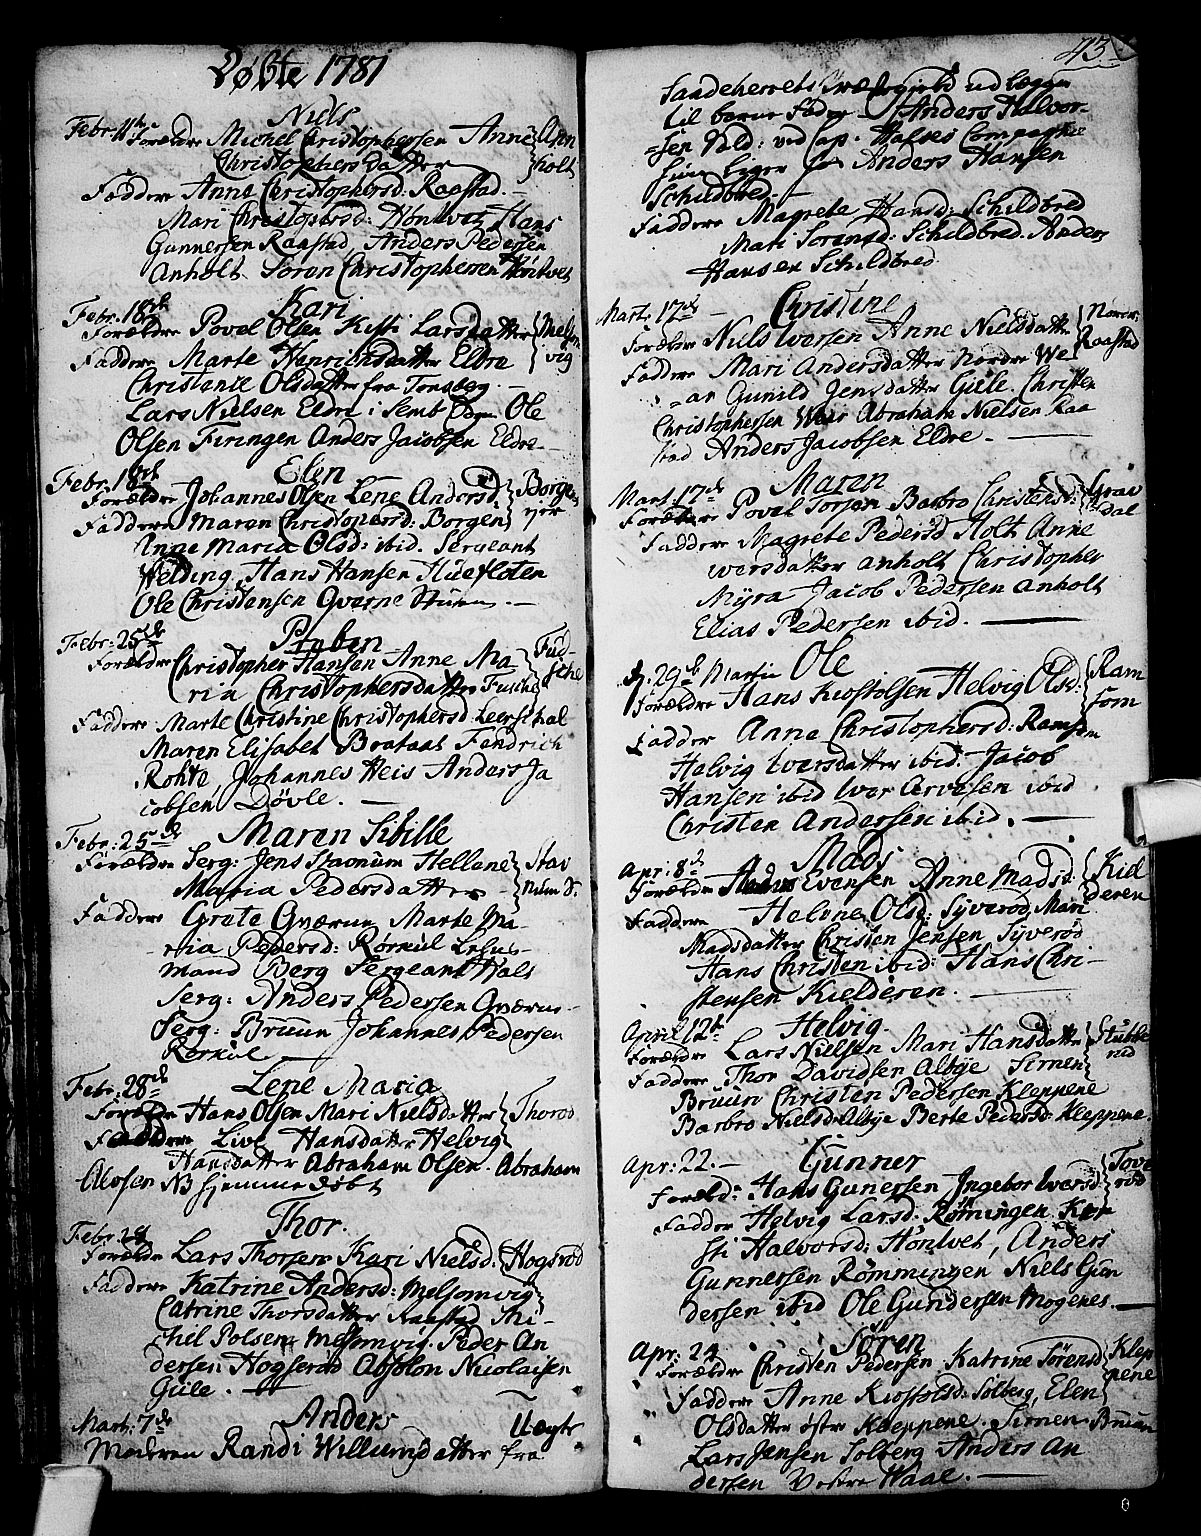 Døbte 1781
Niels
Febr: 11te Forældre Michel Christophersen Anne Ann
Christophers datter holt
Faddere Anne Christophersd: Raastad. -
Mari Christophersd: Høntvet, Hans
Gunnersen Raastad, Anders Pedersen
Anholt Søren Christophersen Høntvet
Kari
Febr: 18de
Forældre Povel Olsen Kisti Larsdatter Melsom
Faddere Marte Henrichsdatter Eldre vig
Christence Olsdatter fra Tønsberg. -
Lars Nielsen Eldre i Semb Ole
Olsen Firingen Anders Jacobsen Eldre -
Elen -
Febr: 18de
Forældre Johannes Olsen Lene Andersd. Borgen
Faddere Maren Christophersd: Borgen
Anne Maria Olsd: ibid. Sergeant
Welding, Hans Hansen Huefløten
Ole Christensen Qverne -
Preben
Febr: 25de
Forældre Christopher Hansen Anne Ma- Fus-
ria Christophersdatter Fusche sche
Faddere Marte Christine Christophersd: Leersthal
Maren Elisabet Brataas Fendrich
Rohte, Johannes Heis Anders Ja
cobsen Døvle. -
Maren Sibille
Febr: 25de
Forældre Serg: Jens Stavnum Hellene Stav
Maria Pedersdatter - num S.
Faddere Grete Qværun Marte Ma-
ria Pedersd: Rørkiil
mand Berg Sergeant Hals
Serg: Anders Pedersen Qværn-
Serg: Bruun Johannes Pedersen
Rørkiil -
Lene Maria
Febr: 28de
Forældre Hans Olsen Mari Nielsdatter Thorød
Faddere Live Hansdatter Helvig
Hansdatter Abraham Olsen. Abraham
Alvsen NB hjemmedøbt
Thor.
Febr: 28
Forældre Lars Thorsen Kari Nielsd: Hogsrød
Faddere Katrine Andersd: Melsomvig
Catrine Thorsdatter Raastad Mi-
chil Polsen Melsomvig. Peder An
dersen Hogserød Absolon Nicolaisen
Giile. -
Anders
Mart: 7de
Moderen Randi Willumsdatter fra
43.
Sandeherrets Præstegield
til barne Fader Anders Halvor-
sen Vald: ved Cap. Hals Compagnie
Anders Hansen
Schildbred. -
Faddere Magrete Hansd: Schildbred
Mari Sørensd: Schildbred. Anders
Hansen Schildbred
Christine
Mart. 17de -
Forældre Niels Iversen Anne Nielsdatter Nører
Faddere Mari Andersdatter Nordre We Raastad
ar Gunild Jensdatter Giile. Christen
Christophersen Wear Abraham Nielsen Raa
stad Anders Jacobsen Eldre. -
Maren
Mart. 17de
Forældre Povel Torsen Barbro Christensd: Grav
Faddere Magrete Pedersd Holt Anne dal
Iversdatter Anholt Christopher
Myra Jacob Pedersen Anholt
Elias Pedersen ibid. -
Ole
d: 29de Martii
Forældre Hans Krostofsen Helvig Olsd: Ram
Faddere Anne Christophersd: Ramsom som
Helvig Iversdatter ibid: Jacob
Hansen ibid Iver Arvesen ibid
Christen Andersen ibid. -
Mads
Apr: 8de
Forældre Anders Evensen Anne Madsd: Kid
Faddere Helvne Olsd: Syverød, Mari deren
Madsdatter Christen Jensen Syverød
Hans Christen ibid: Hans Chri-
stensen Kielderen. -
Helvig -
April 12te
Forældre Lars Nielsen Mari Hansdatter Stubbe
Faddere Thor Davidsen Albye Simen rud
Bruun Christen Pedersen Kleppene
Barbro Nielsd Albye Berte Pedersd: Kleppene.
Gunner
Apr: 22. -
Foræld: Hans Gunersen Ingebor Iversd: Tove
Faddere Helvig Larsd: Rømmingen Ker rød
sti Halvorsd: Høntvet, Anders
Gunnersen Rømmingen Niels Gun
dersen ibid Ole Gundersen Mogenes. -
Søren
Apr: 24
Forældre Christen Pedersen Katrine Sørensd Klep
Faddere Anne Krostofsd: Solberg, Elen pene
Olsdatter østre Kleppene. Simen Bruun
Lars Jensen Solberg Anders An
dersen Vestre Waae. -